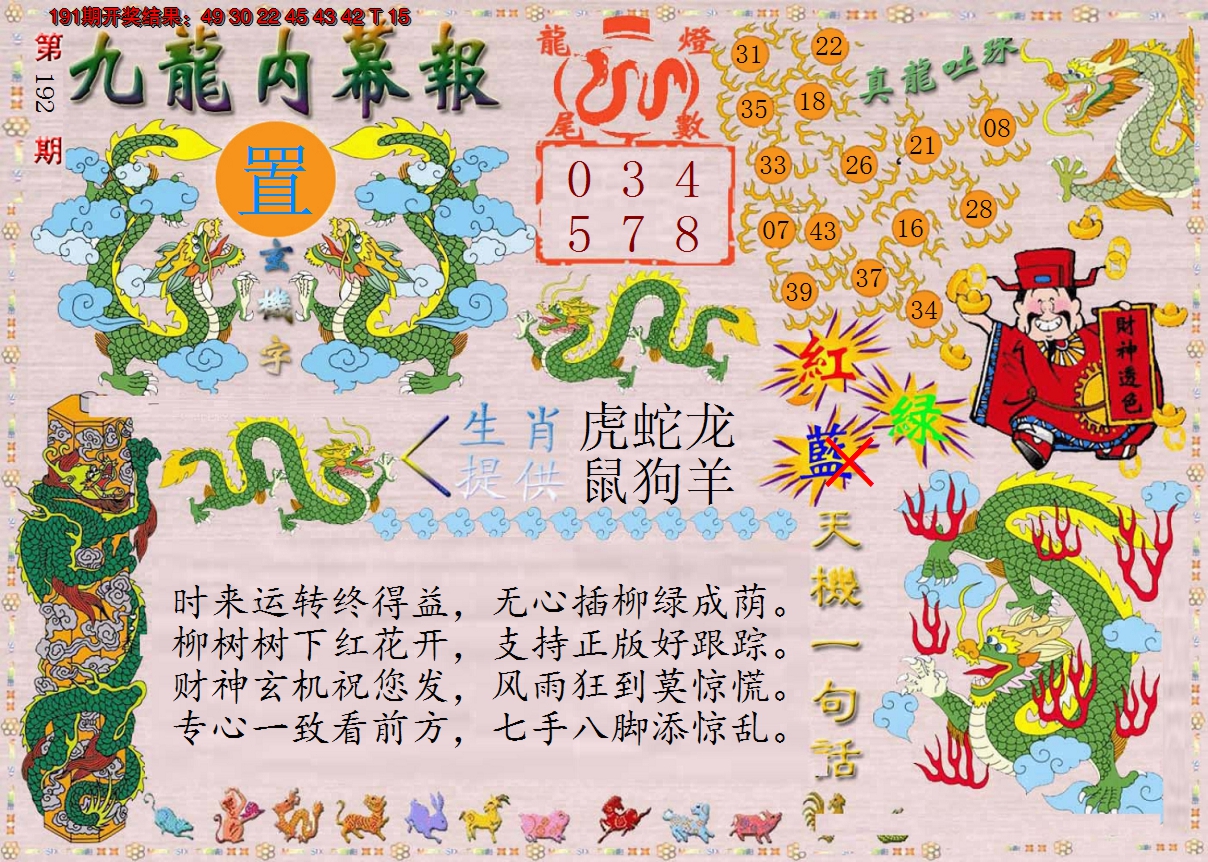 191期开奖结果：49 30 22 45 43 42 T 15
第192期
九龍内幕報
置
玄機字
龍燈尾數
0 3 4
5 7 8
真龍吐珠
31 22
35 18
33 26 21 08
07 43 16 28
39 37 34
紅
绿
藍
財神透色
生肖 虎蛇龙
提供 鼠狗羊
天機一句话
时来运转终得益，无心插柳绿成荫。
柳树树下红花开，支持正版好跟踪。
财神玄机祝您发，风雨狂到莫惊慌。
专心一致看前方，七手八脚添惊乱。